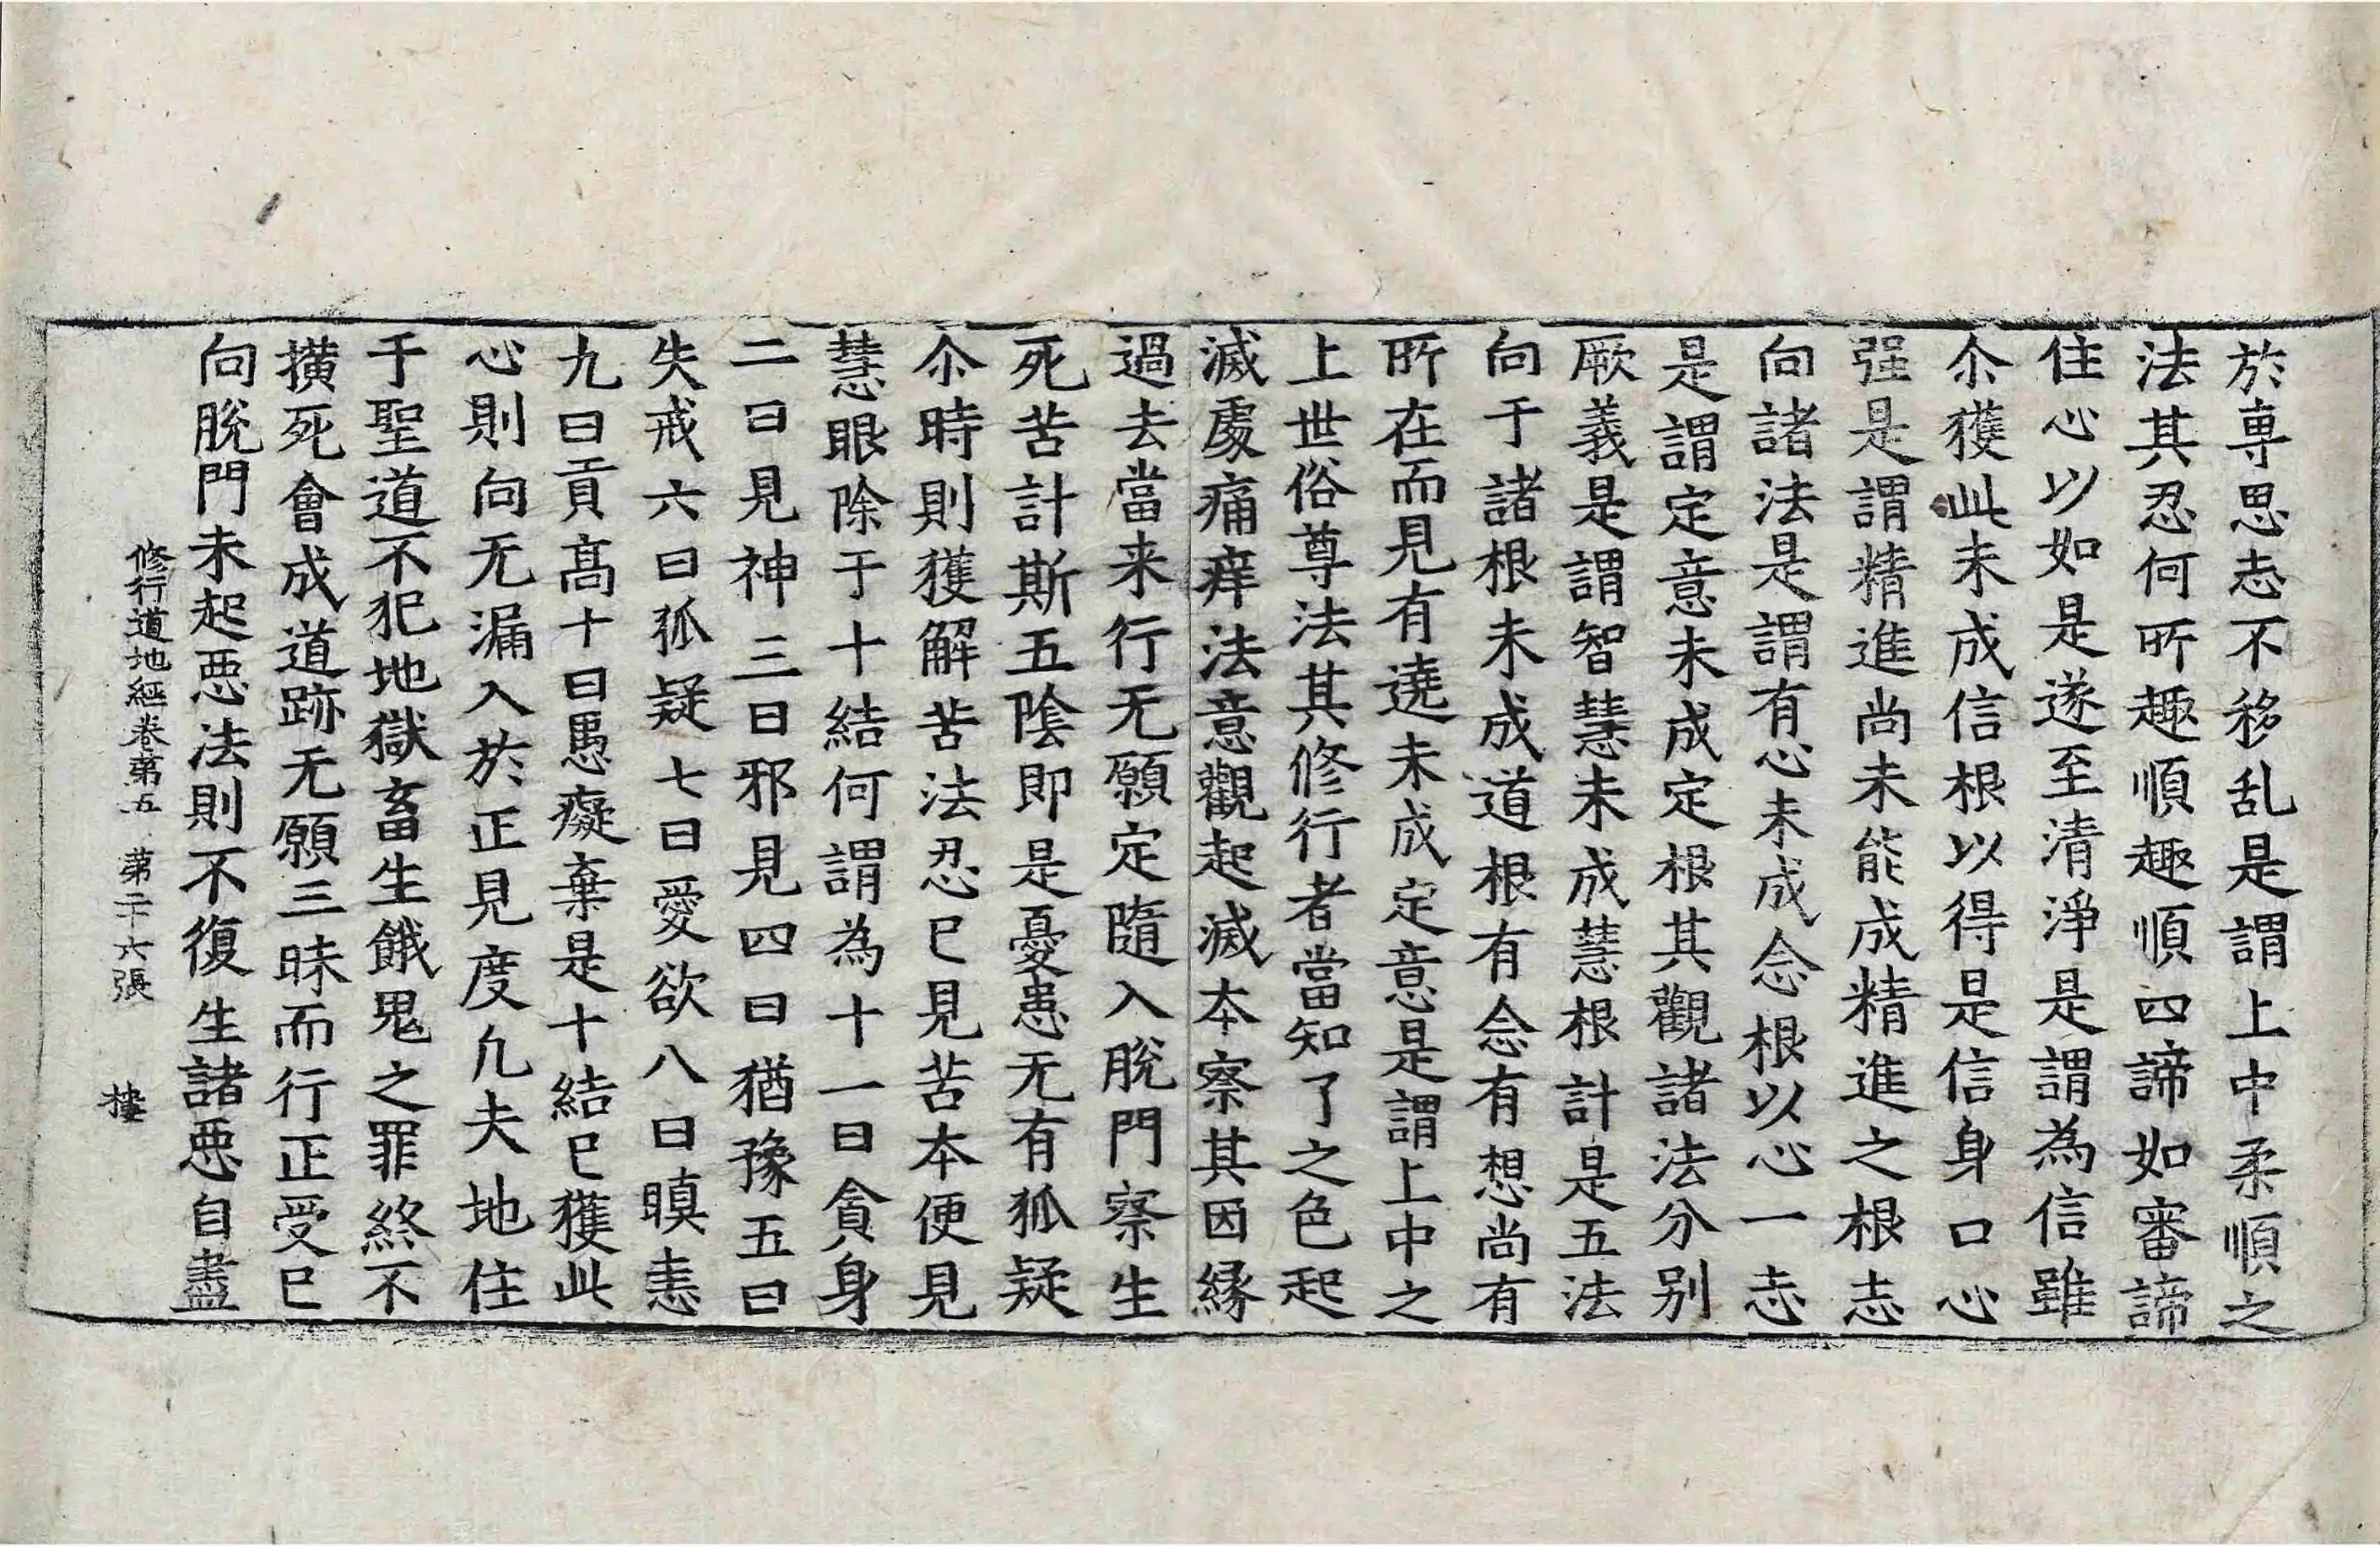 於専思志不移乱是謂上中柔順之
法其忍何所趣順趣順四諦如審諦
住心以如是遂至清淨是謂為信雖
尒獲此未成信根以得是信身口心
强是謂精進尚未能成精進之根志
向諸法是謂有心未成念根以心一志
是謂定意未成定根其觀諸法分別
厥義是謂智慧未成慧根計是五法
向于諸根未成道根有念有想尚有
所在而見有遶未成定意是謂上中之
上世俗尊法其修行者當知了之色起
滅處痛痒法意觀起滅本察其因緣
過去當来行无願定隨入脫門察生
死苦計斯五陰即是憂患无有狐疑
尒時則獲解苦法忍已見苦本便見
慧眼除于十結何謂為十一曰貪身
二曰見神三曰邪見四曰猶豫五曰
失戒六曰狐疑七曰愛欲八曰瞋恚
九曰貢髙十曰愚癡棄是十結已獲此
心則向无漏入於正見度凢夫地住
于聖道不犯地獄畜生餓鬼之罪終不
撗死會成道跡无願三昧而行正受已
向脫門未起惡法則不復生諸惡自盡
修行道地經卷第五 第二十六張 樓